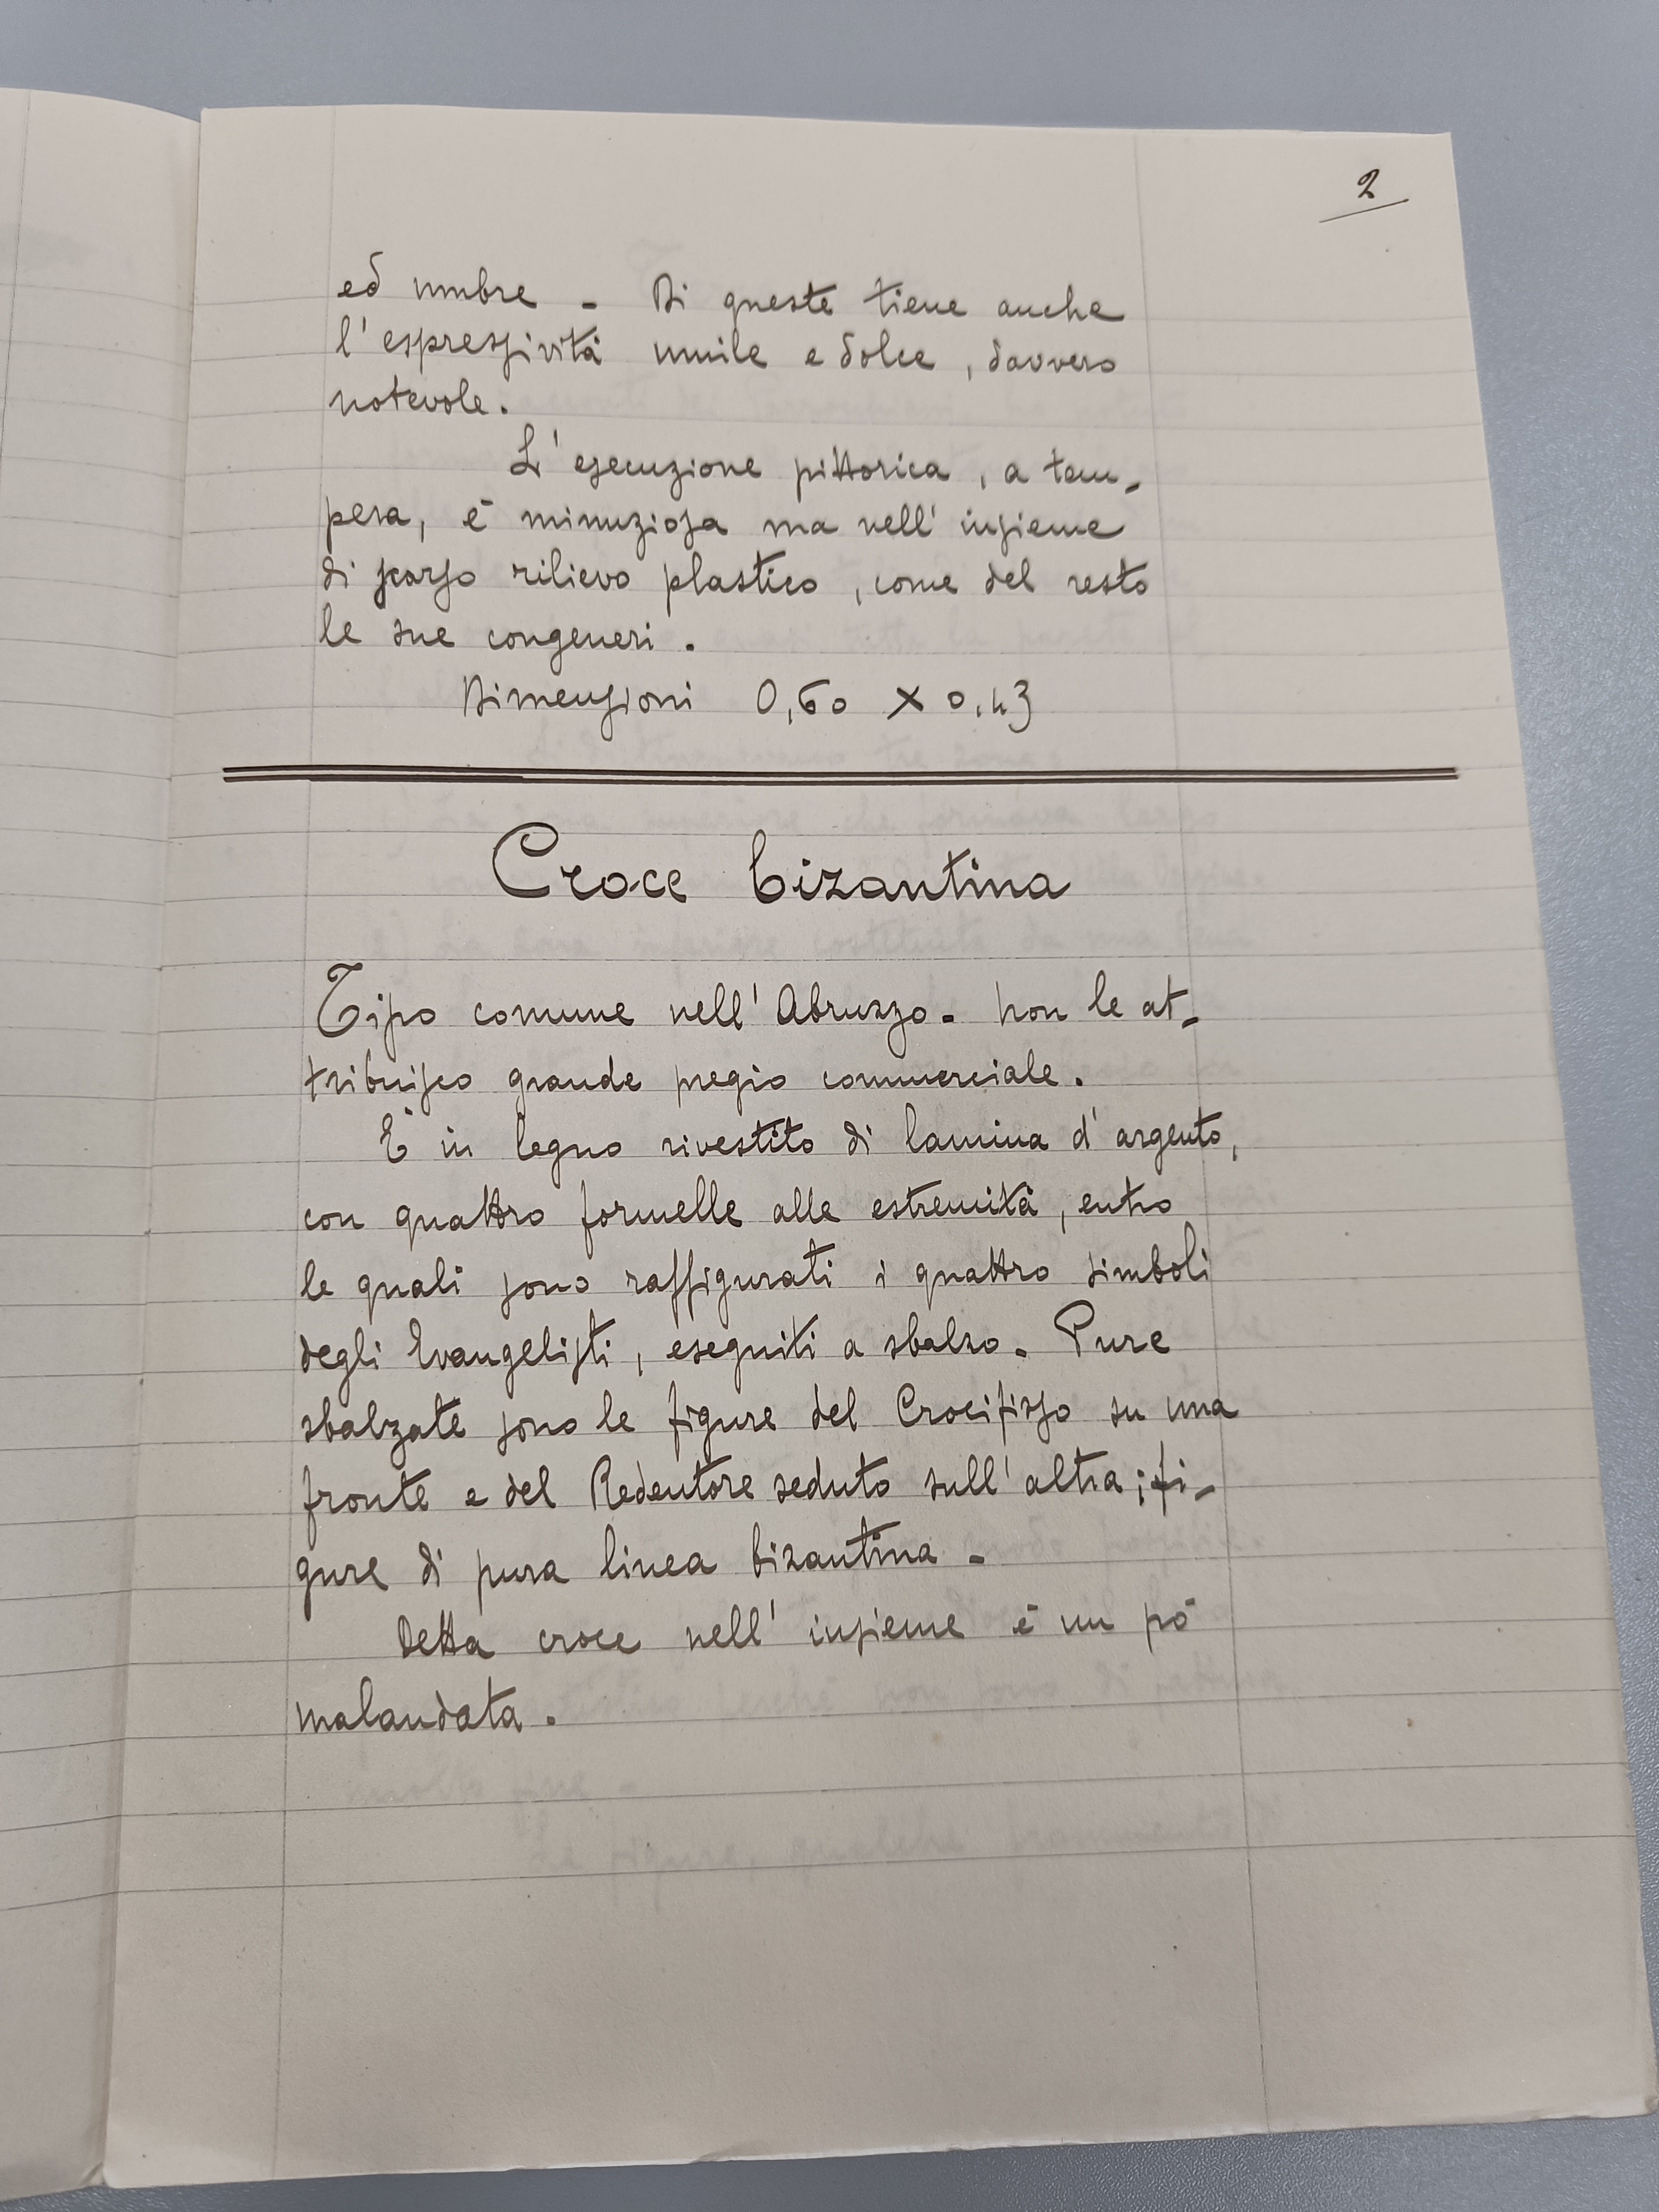 2
ed umbre - Di queste tiene anche
l'espressività umile e dolce, davvero
notevole.
L'esecuzione pittorica, a tem-
pera, è minuziosa ma nell'insieme
di scarso rilievo plastico, come del resto
le sue congeneri.
Dimensioni 0,60 X 0,43
Croce bizantina
Tipo comune nell'Abruzzo. Non le at-
tribuisco grande pregio commerciale.
È in legno rivestito di lamina d'argento,
con quattro formelle alle estremità, entro
le quali sono raffigurati i quattro simboli
degli Evangelisti, eseguiti a sbalzo. Pure
sbalzate sono le figure del Crocifisso su una
fronte e del Redentore seduto sull'altra; fi-
gure di pura linea bizantina -
Detta croce nell'insieme è un pò
malandata.